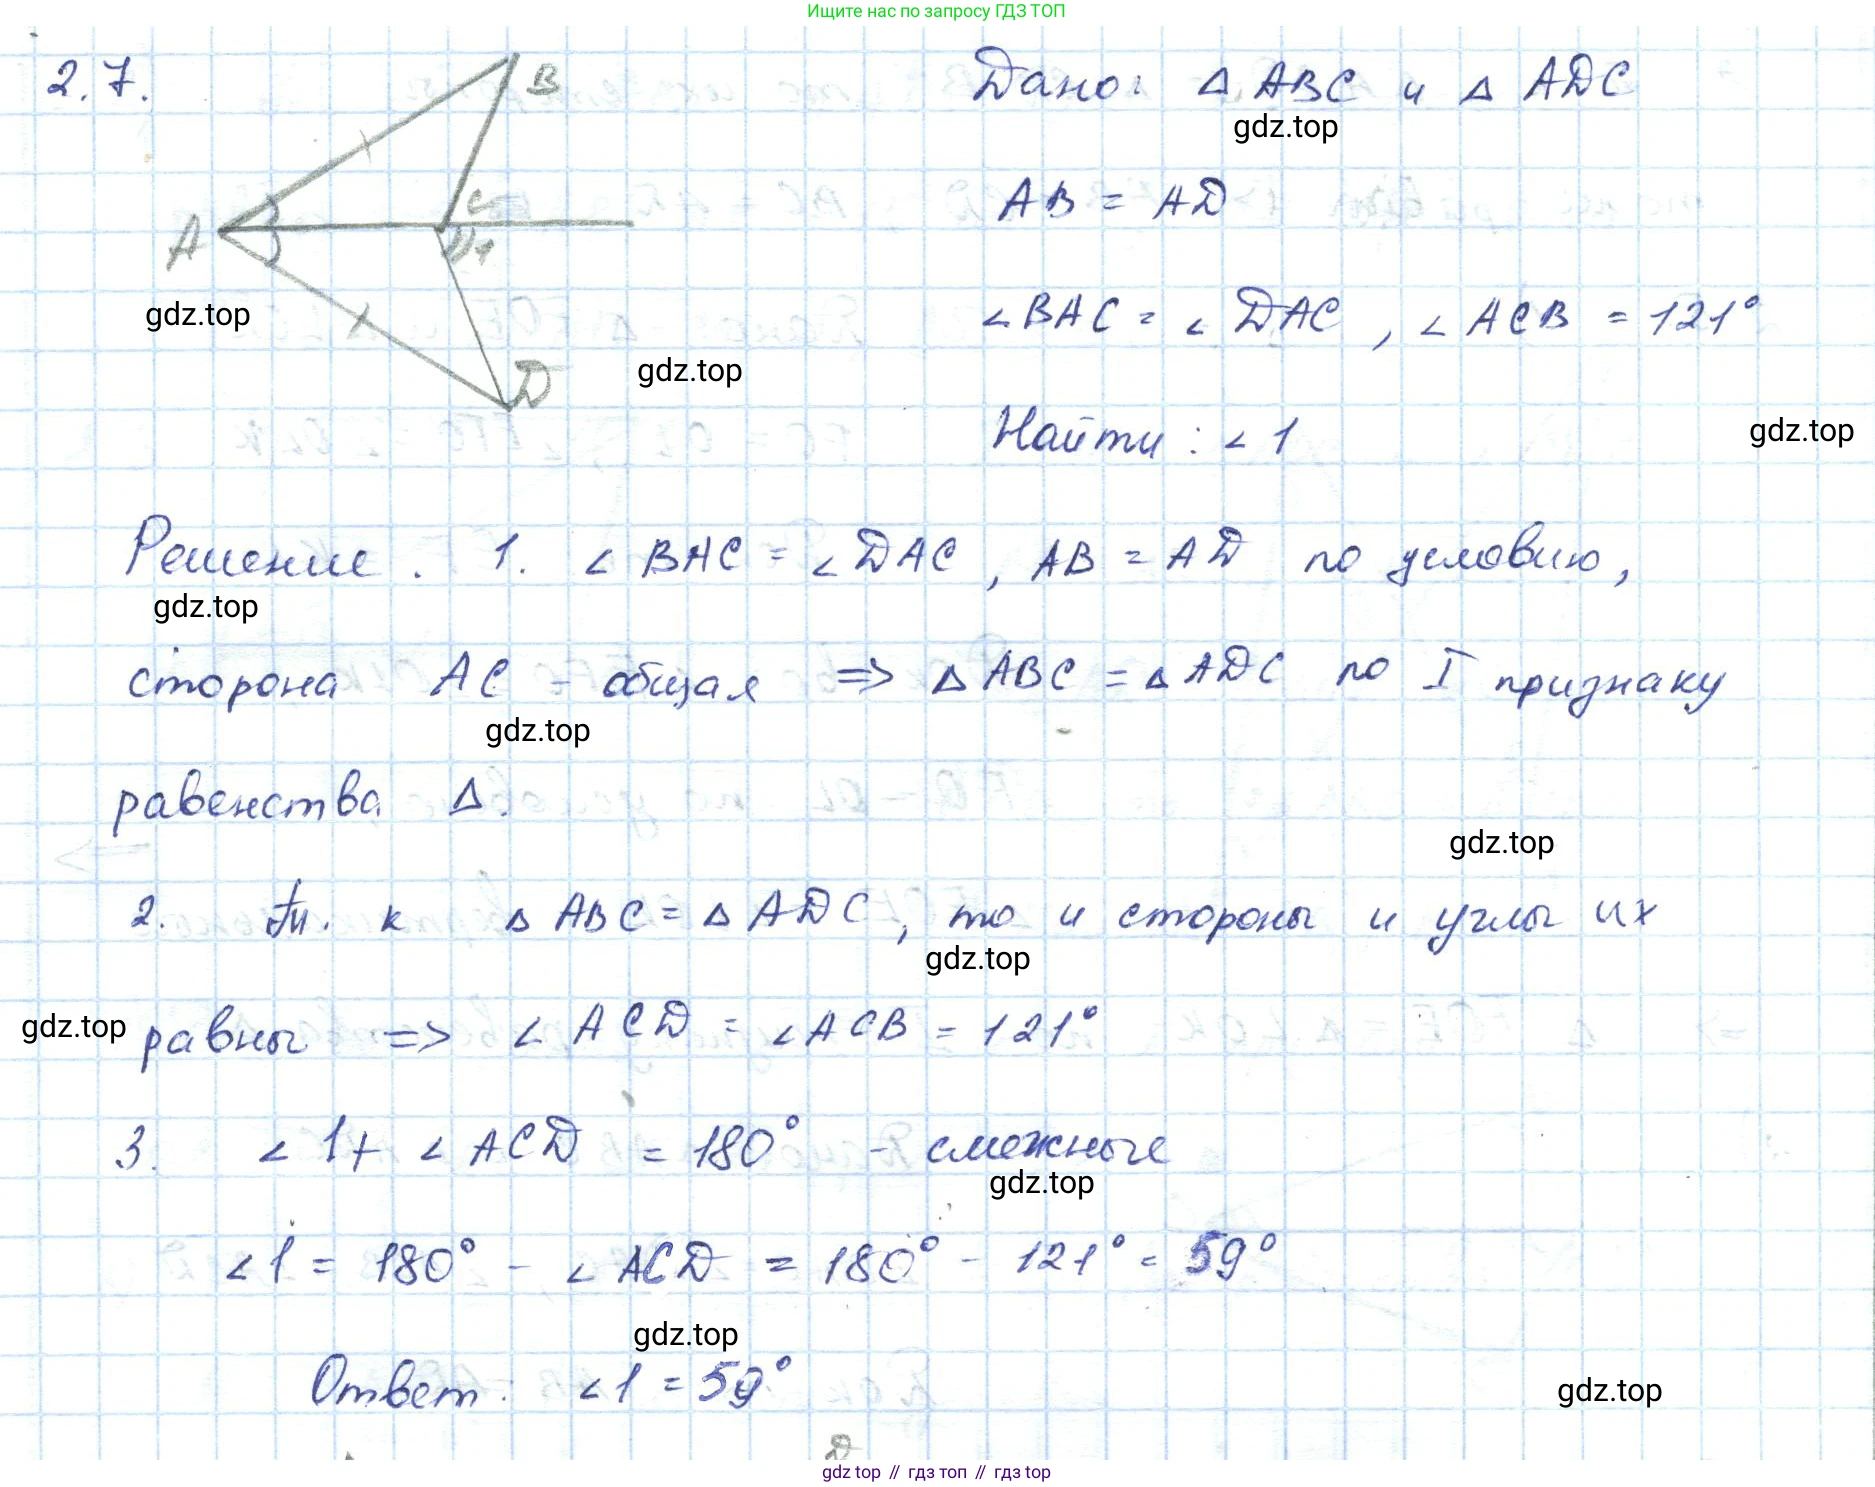 Ищите нас по запросу ГДЗ ТОП
2.7.
B
C
A
1
D
Дано: △ ABC и △ ADC
gdz.top
AB = AD
∠BAC = ∠DAC, ∠ACB = 121°
gdz.top
gdz.top
Найти: ∠1
gdz.top
Решение. 1. ∠BAC = ∠DAC, AB = AD по условию,
gdz.top
сторона AC - общая => △ABC = △ADC по I признаку
gdz.top
равенства △.
gdz.top
2. Т. к △ABC = △ADC, то и стороны и углы их
gdz.top
gdz.top
равны => ∠ACD = ∠ACB = 121°
3. ∠1 + ∠ACD = 180° - смежные
gdz.top
∠1 = 180° - ∠ACD = 180° - 121° = 59°
gdz.top
Ответ: ∠1 = 59°
gdz.top
D
gdz top // гдз топ // гдз top